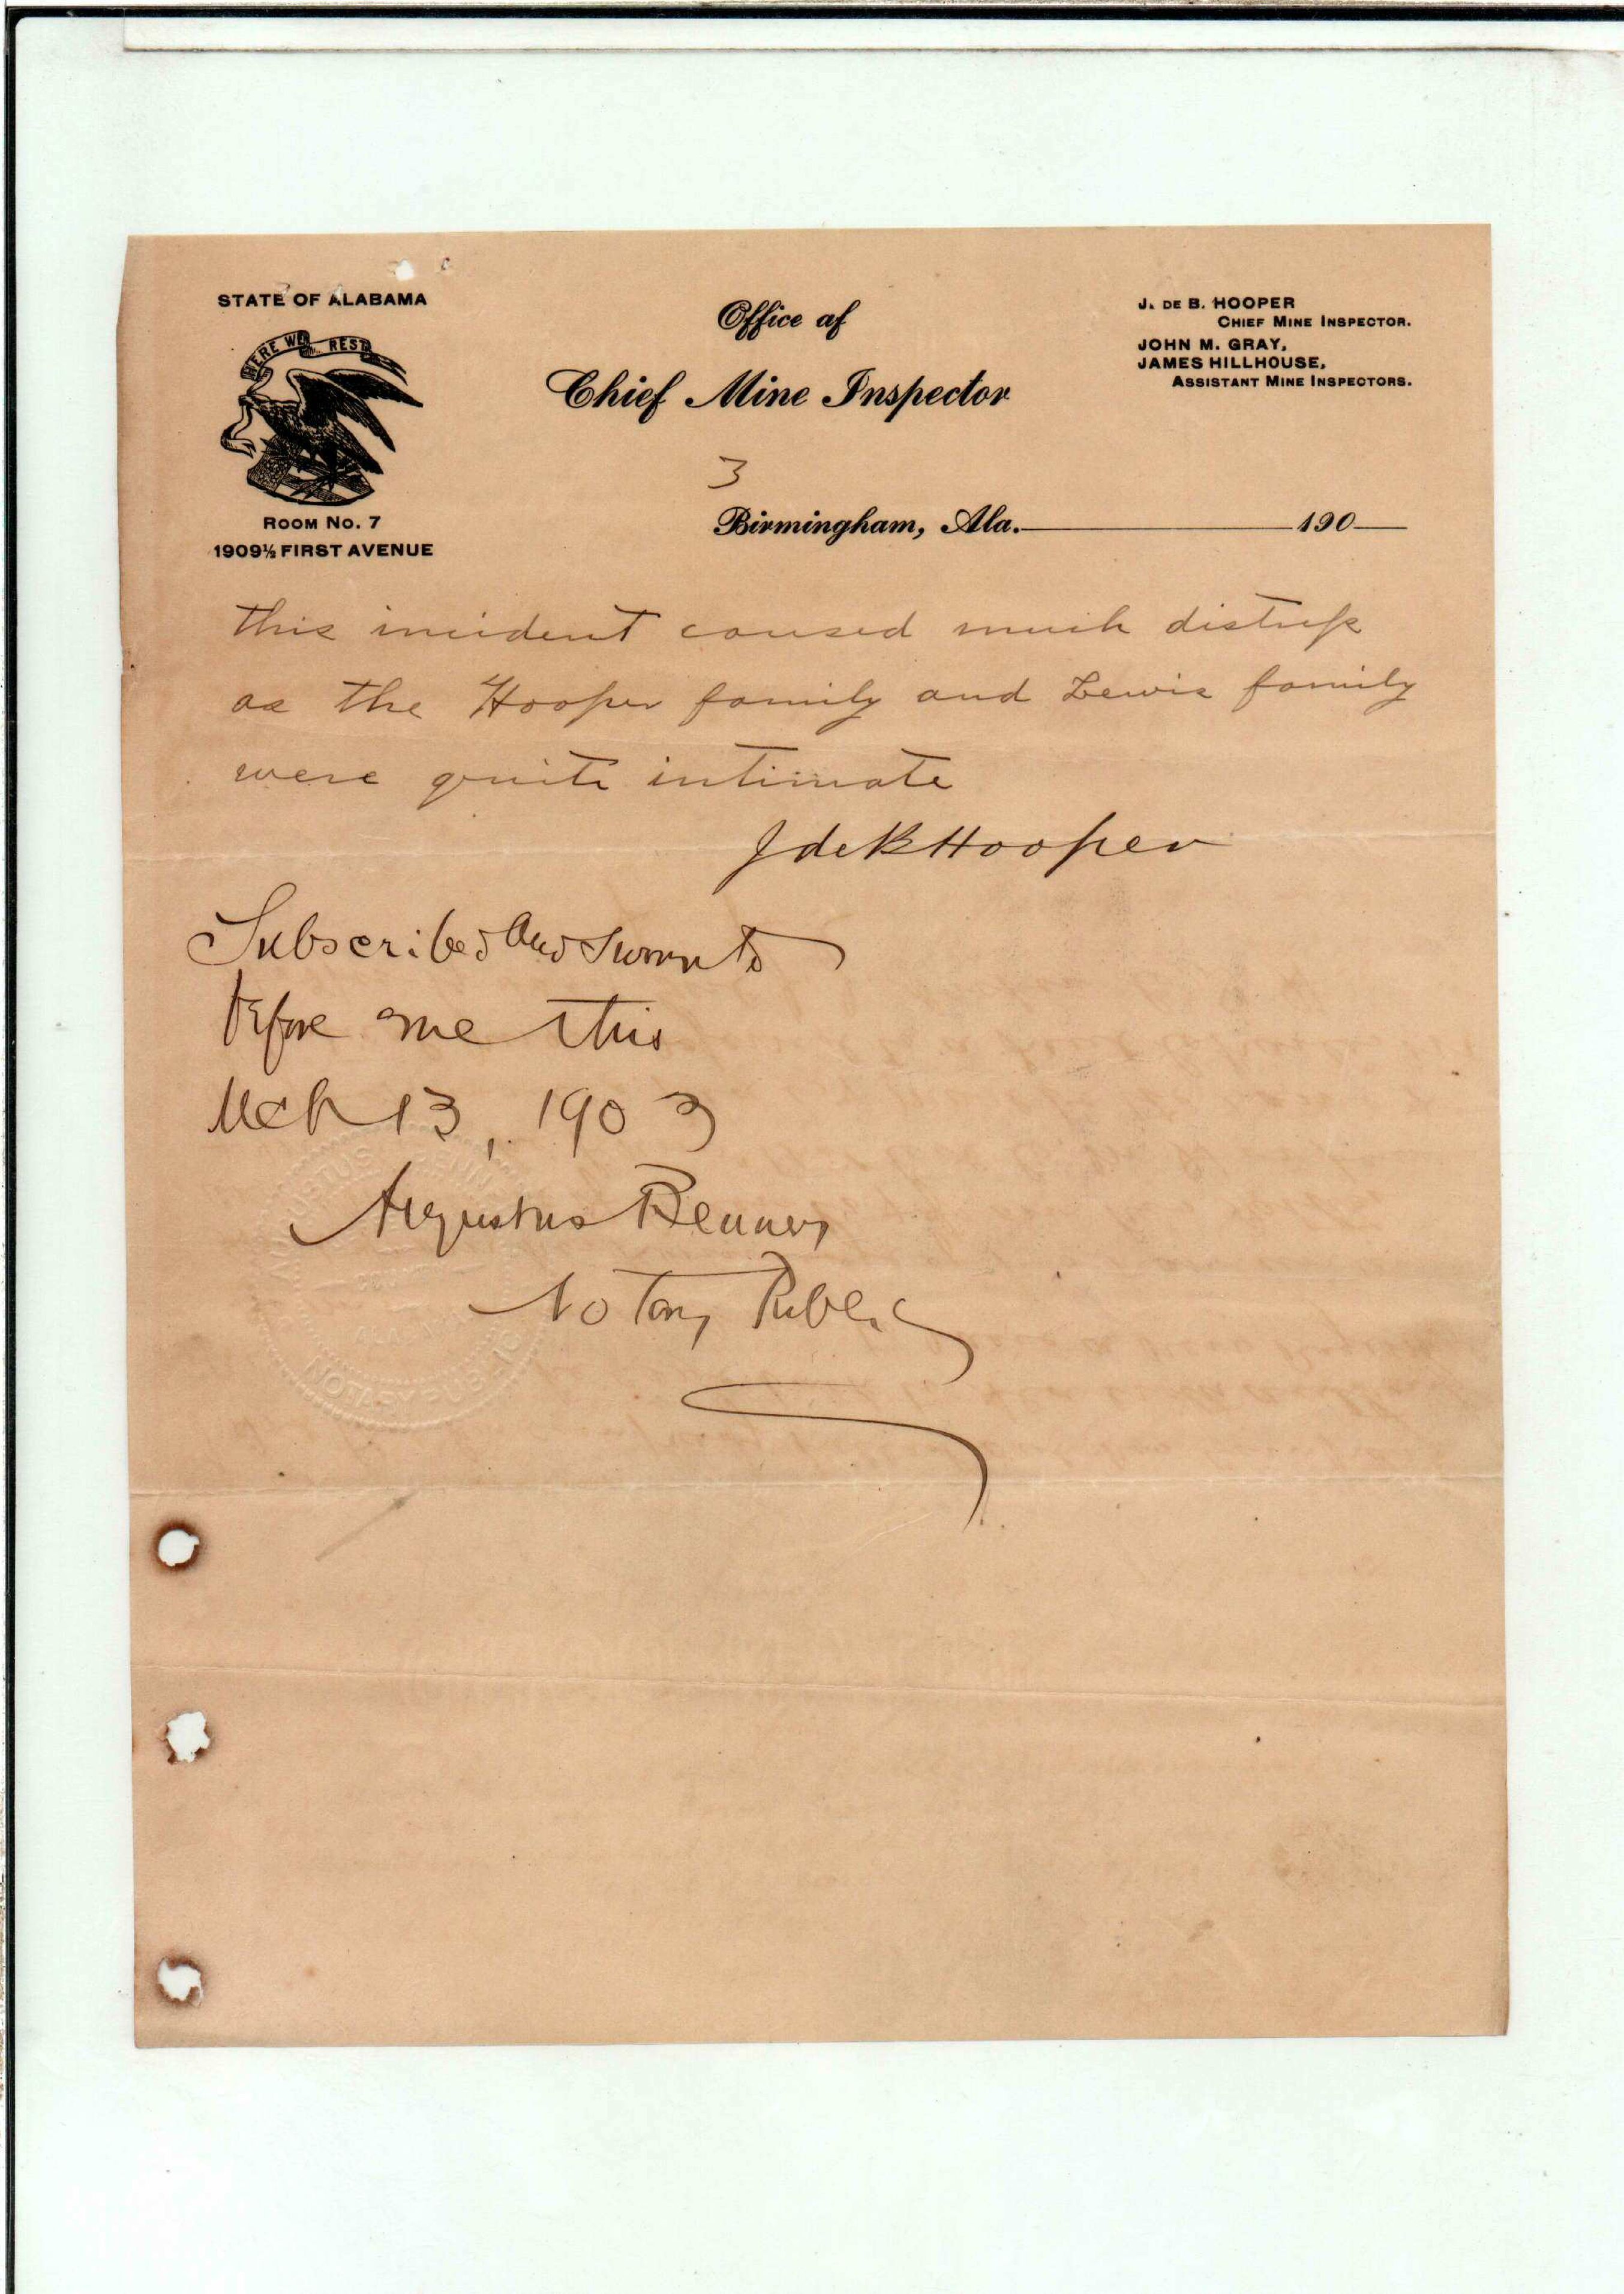 STATE OF ALABAMA
HERE WE REST
ROOM NO. 7
1909½ FIRST AVENUE
Office of
Chief Mine Inspector
J. DE B. HOOPER
CHIEF MINE INSPECTOR.
JOHN M. GRAY,
JAMES HILLHOUSE,
ASSISTANT MINE INSPECTORS.
3
Birmingham, Ala. 190
this incident caused much distress
as the Hooper family and Lewis family
were quite intimate
J de B Hooper
Subscribed and sworn to
before me this
Mch 13, 1903
Augustus Benners
Notary Public
AUGUSTUS
ALA.
NOTARY PUBLIC